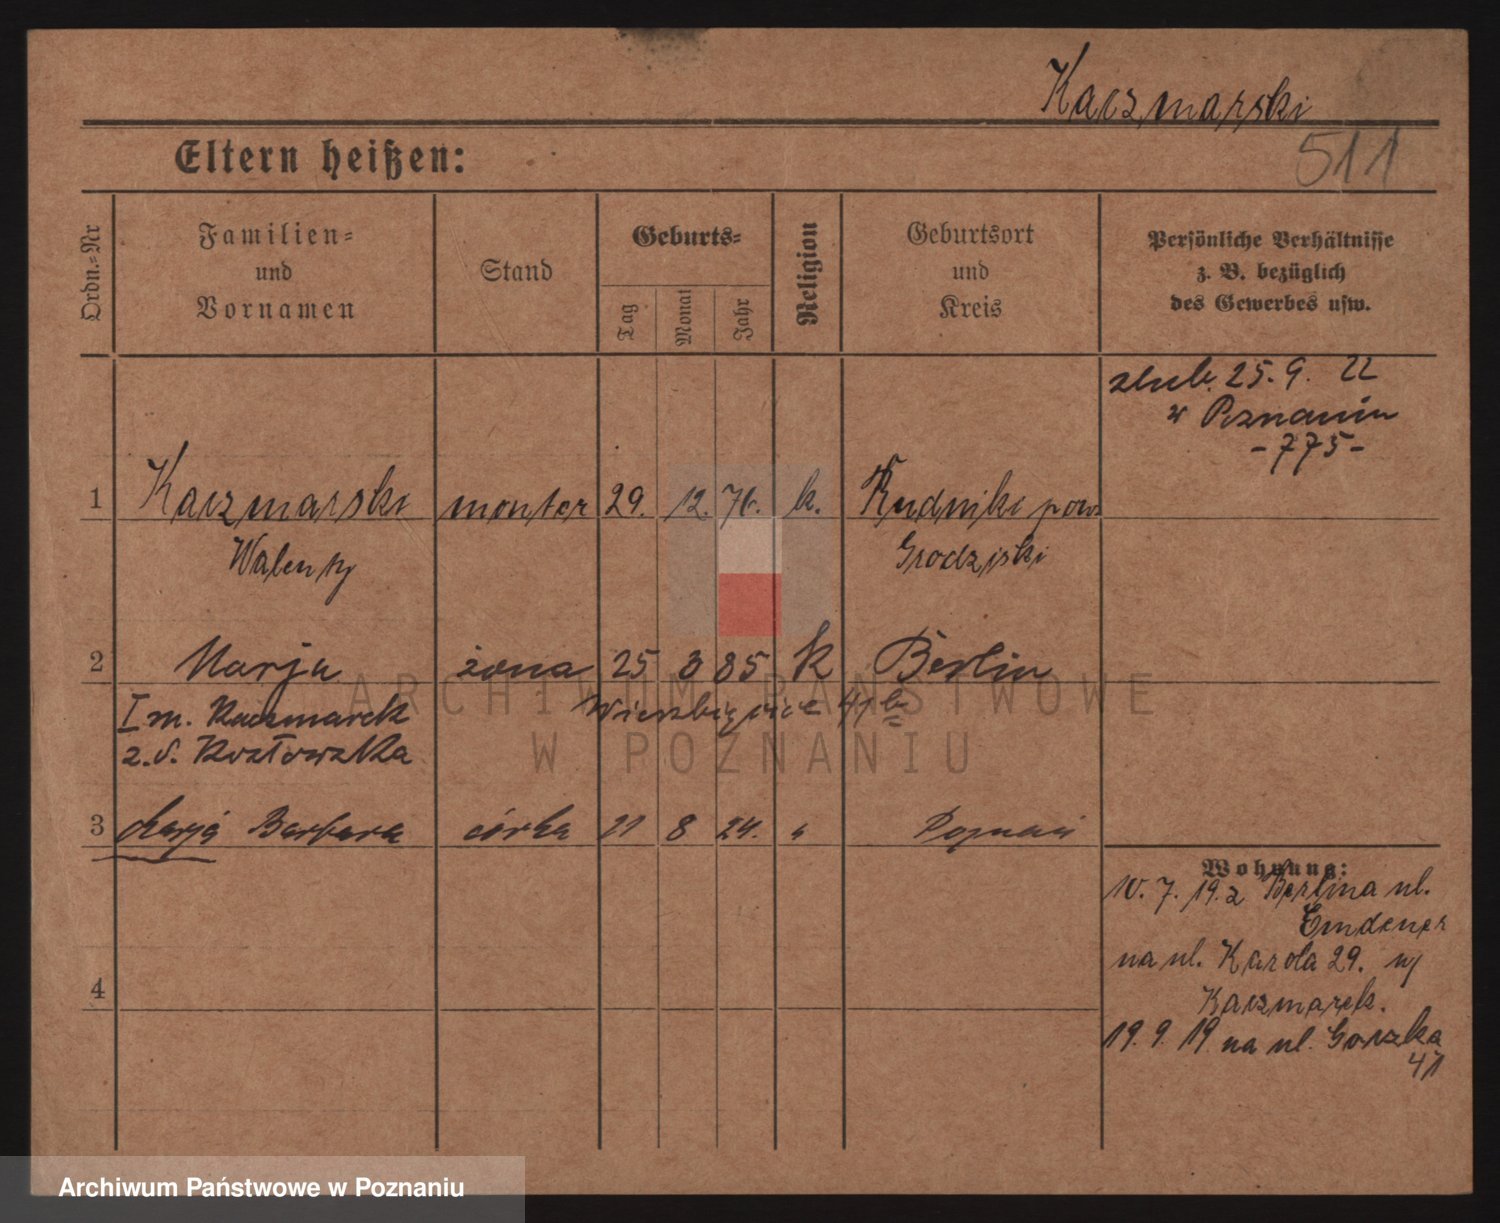 Kaczmarski
511
Eltern heißen:
Ordn.-Nr
Familien-
und
Vornamen
Stand
Geburts-
Tag
Monat
Jahr
Religion
Geburtsort
und
Kreis
Persönliche Verhältnisse
z. B. bezüglich
des Gewerbes usw.
ślub. 25. 9. 22
w Poznaniu
-775-
1 Kaczmarski monter 29. 12. 76. k. Rudniki pow
Walenty Grodziski
2 Marja żona 25 3 85 k Berlin
I m. Kaczmarek 41 b
z. d. Kozłowska
3 Marja Barbara córka 21 8 24. Poznań
Wohnung:
10. 7. 19. z Berlina ul.
Emdener
na ul. Karola 29.
Kaczmarek.
4
19. 9. 19 na ul. Gorzka
41
ARCHIWUM PAŃSTWOWE
W POZNANIU
Archiwum Państwowe w Poznaniu